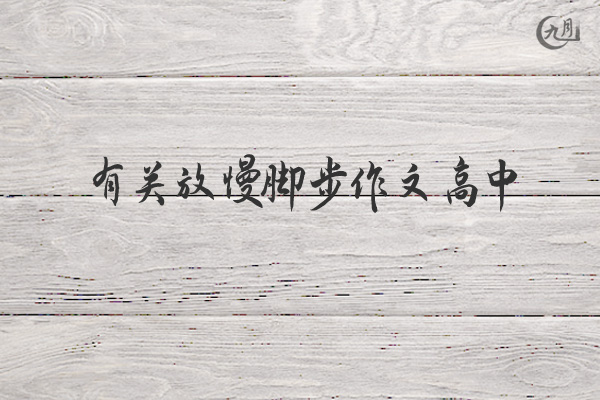 九月
有关放慢脚步作文高中